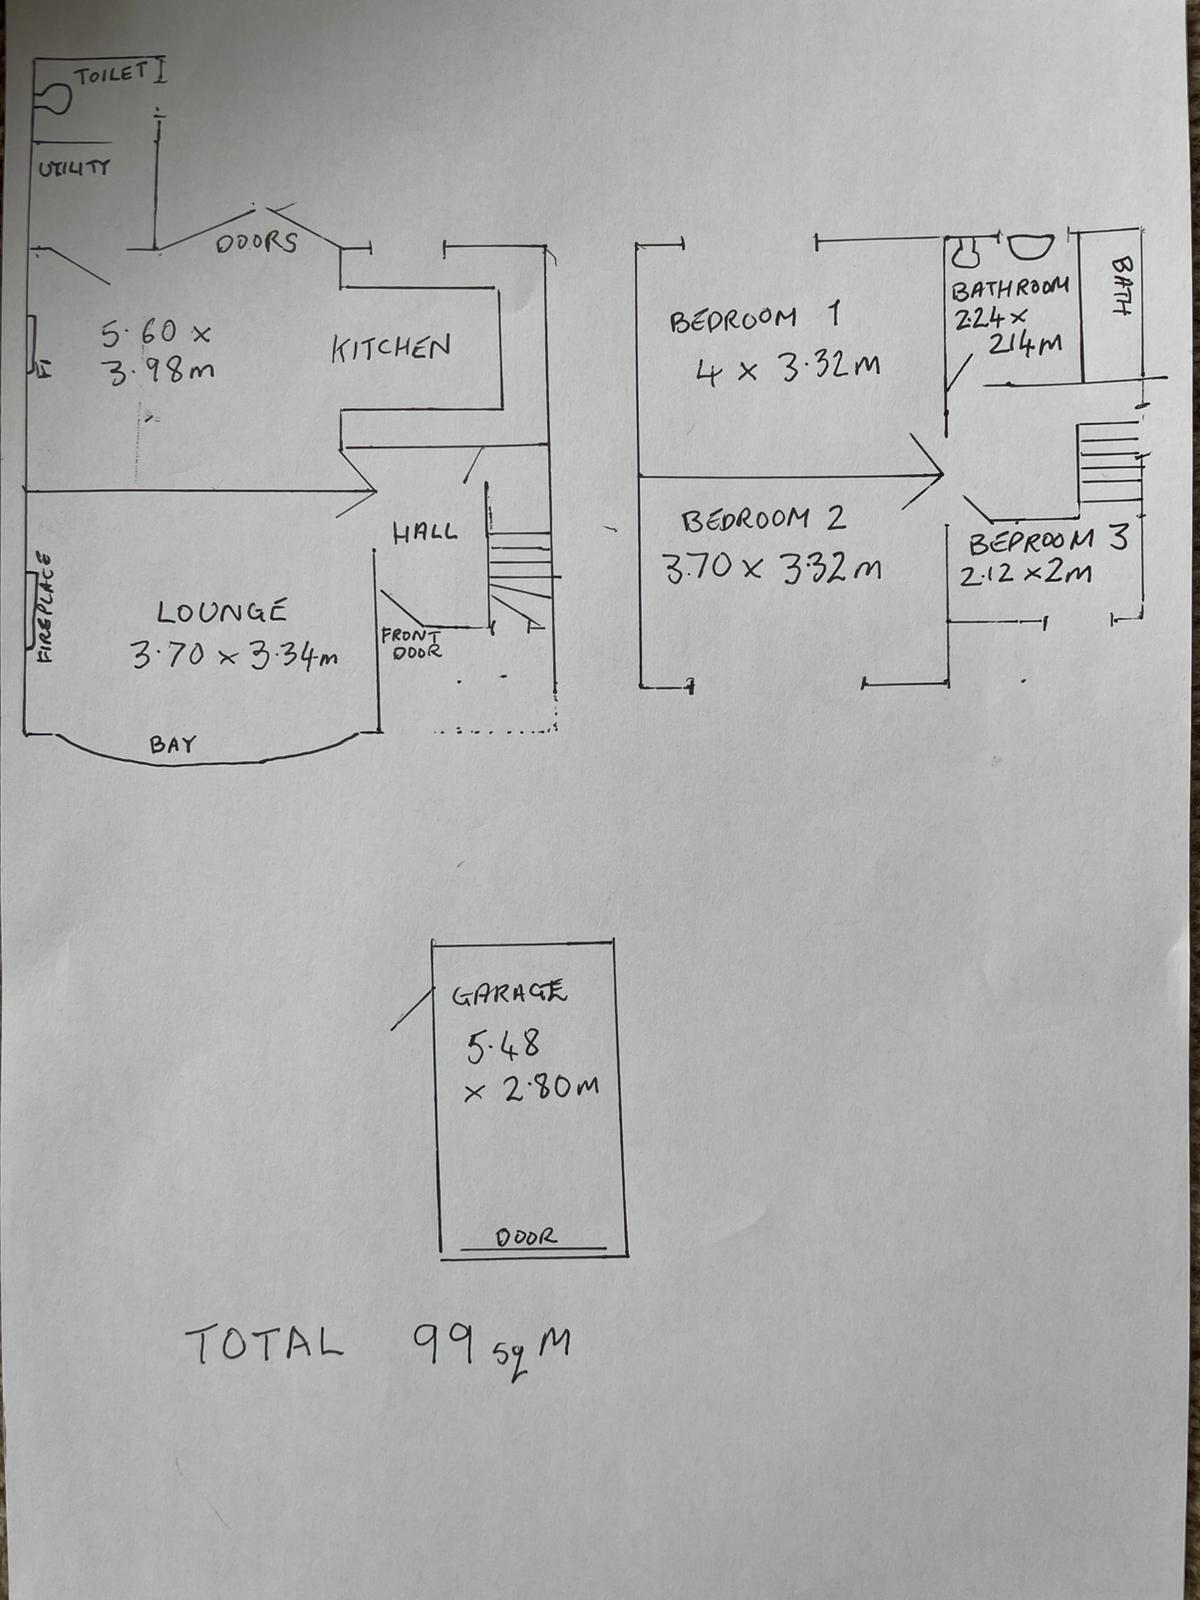 TOILET
UTILITY
DOORS
5.60 x
3.98m
KITCHEN
HALL
FIREPLACE
LOUNGE
3.70 x 3.34m
FRONT
DOOR
BAY
BEDROOM 1
4 x 3.32m
BATHROOM
2.24 x
2.14m
BATH
BEDROOM 2
3.70 x 3.32m
BEDROOM 3
2.12 x 2m
GARAGE
5.48
x 2.80m
DOOR
TOTAL 99 sq M